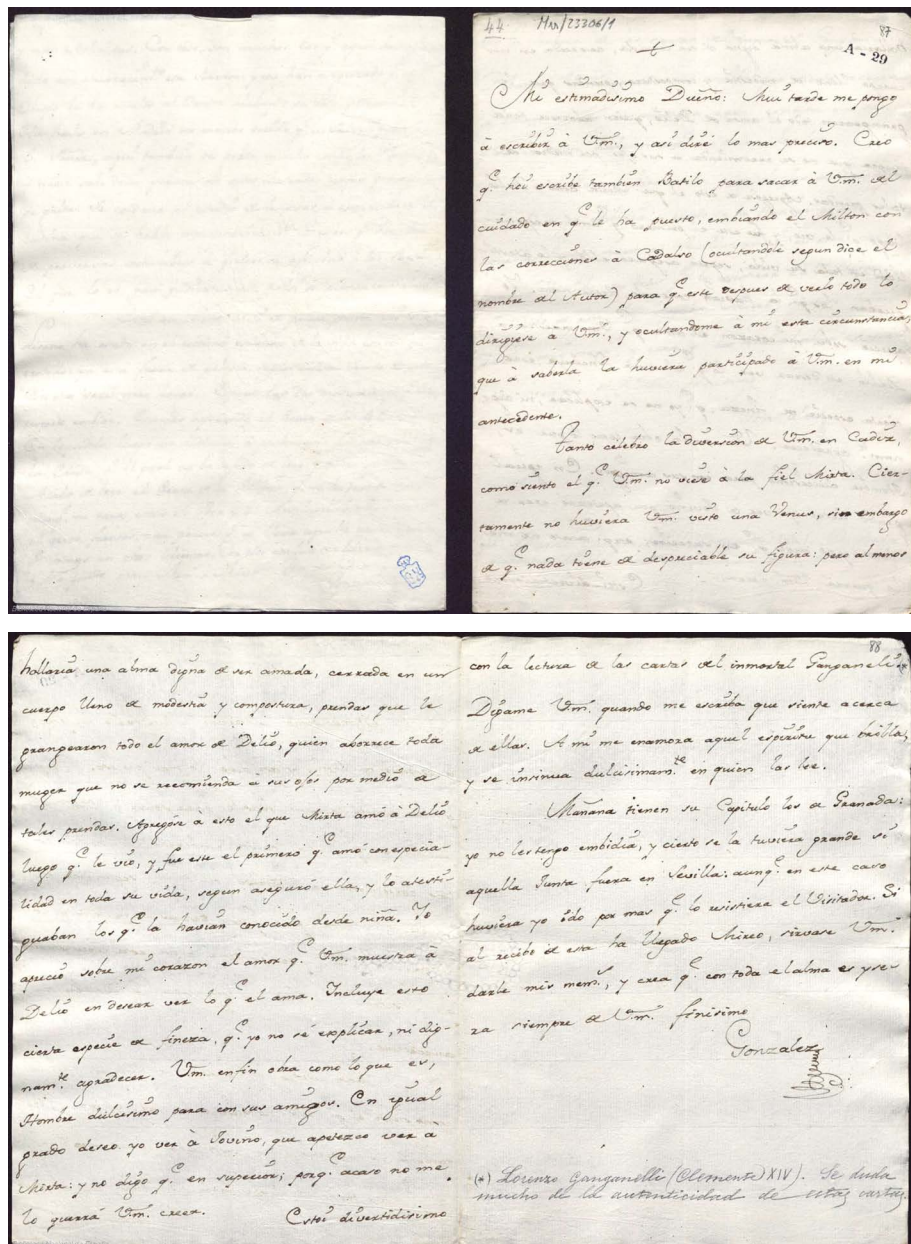 44
Mss/23306/1
87
+
A-29
Mi estimadisimo Dueño: Mui tarde me pongo
à escribir à Vm., y asi diré lo mas preciso. Creo
q.e hoi escribe tambien Batilo para sacar à Vm. del
cuidado en q.e le ha puesto, embiando el Milton con
las correcciones à Cadalso (ocultandole segun dice el
nombre del Autor) para q.e este despues de verlo todo lo
dirigiese à Vm., y ocultandome à mi esta circunstancia,
que à saberla la huviera participado à Vm. en mi
antecedente.
Tanto celebro la diversion de Vm. en Cadiz,
como siento el q.e Vm. no viese à la fiel Mirta. Cier-
tamente no huviera Vm. visto una Venus, sin embargo
de q.e nada tiene de despreciable su figura: pero al menos
hallaria una alma digna de ser amada, cerrada en un
cuerpo lleno de modestia y compostura, prendas que le
grangearon todo el amor de Delio, quien aborrece toda
muger que no se recomienda à sus ojos por medio de
tales prendas. Agregase à esto el que Mirta amó à Delio
luego q.e le vio, y fue este el primero q.e amó con especia-
lidad en toda su vida, segun aseguró ella, y lo atesti-
guaban los q.e la havian conocido desde niña. Yo
aprecio sobre mi corazon el amor q.e Vm. muestra à
Delio en desear ver lo q.e el ama. Incluye esto
cierta especie de fineza, q.e yo no sé explicar, ni dig-
nam.te agradecer. Vm. en fin obra como lo que es,
Hombre dulcisimo para con sus amigos. En igual
grado deseo yo ver à Jovino, que apetezco ver à
Mirta: y no digo q.e en superior; porq.e acaso no me
lo querrá Vm. creer. Estoi divertidisimo
88
con la lectura de las cartas del inmortal Ganganeli (*)
Digame Vm. quando me escriba que siente acerca
de ellas. A mi me enamora aquel espiritu que brilla,
y se insinua dulcisimam.te en quien las lee.
Mañana tienen su Capitulo los de Granada:
yo no les tengo embidia, y cierto se la tuviera grande si
aquella Junta fuera en Sevilla: aunq.e en este caso
huviera yo ido por mas q.e lo resistiera el Visitador. Si
al recibo de esta ha llegado Mireo, sirvase Vm.
darle mis mem.s, y crea q.e con toda el alma es y se-
ra siempre de Vm. finisimo
Gonzalez
(*) Lorenzo Ganganelli (Clemente XIV). Se duda
mucho de la autenticidad de estas cartas